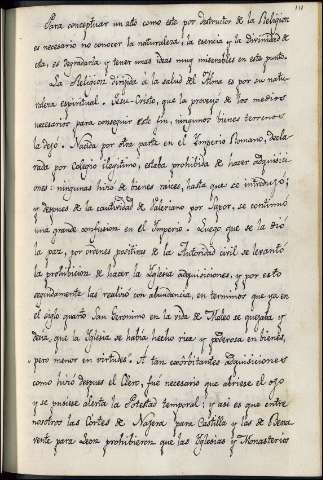 111
Para conceptuar un año como este por destructor de la Religion
es necesario no conocer la naturaleza, la esencia y la Divinidad de
esta, es degradarla y tener unas ideas muy miserables en este punto.
La Religion dirigida à la salud del Alma es por su natu-
raleza espiritual. Jesu-Cristo, que la proveyó de los medios
necesarios para conseguir este fin, ningunos bienes terrenos
la dejó. Nacida por otra parte en el Imperio Romano, decla-
rada por Colegio ilegitimo, estaba prohibida de hacer adquisici-
ones: ningunas hizo de bienes raices, hasta que se introdujo;
y despues de la cautividad de Valeriano por Sapor, se continuó
una grande confusion en el Imperio. Luego que se la dió
la paz, por ordenes positivas de la Autoridad civil se levantó
la prohibicion de hacer la Iglesia adquisiciones, y por esto
seguidamente las realizó con abundancia, en terminos que ya en
el siglo quarto San Geronimo en la vida de Malco se quejaba y
decia, que la Iglesia se habia hecho rica y poderosa en bienes,
pero menor en virtudes. A tan exorbitantes adquisiciones
como hizo despues el Clero, fue necesario que abriese el ojo
y se pusiese alerta la Potestad temporal; y asi es que entre
nosotros las Cortes de Najera para Castilla y las de Bena-
vente para Leon prohibieron que las Iglesias y Monasterios